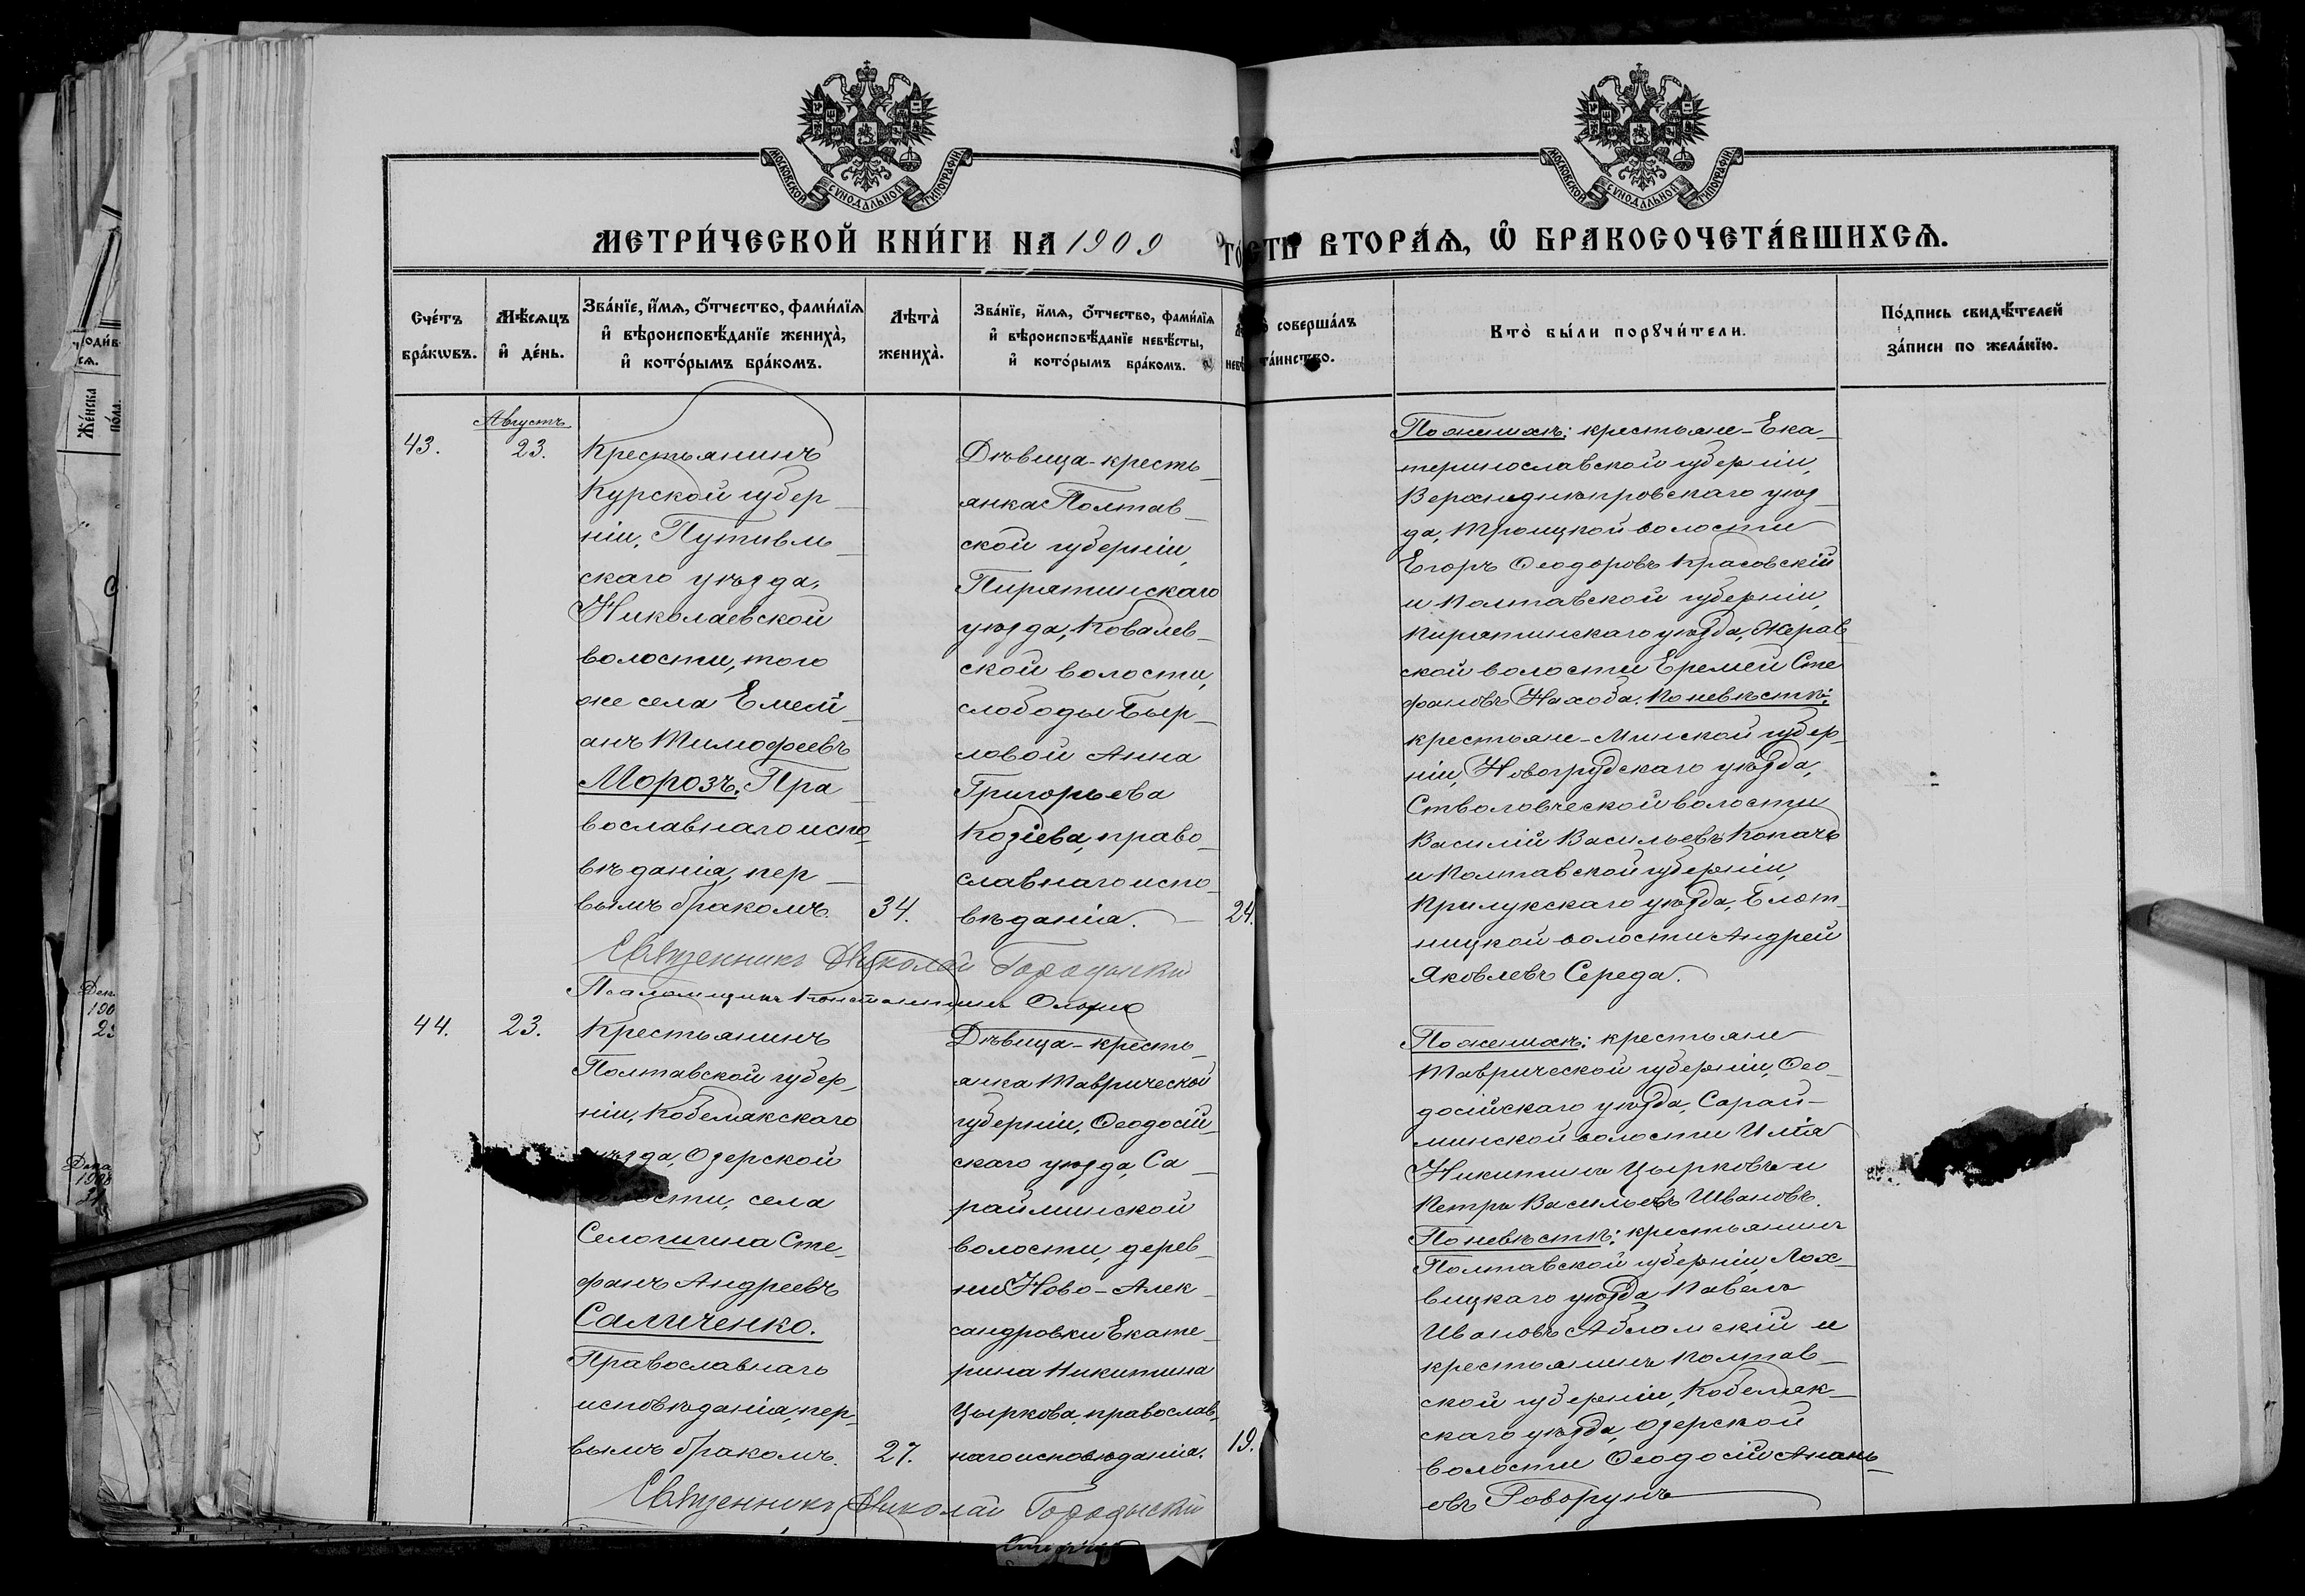 МОСКОВСКОЙ СѴНОДАЛЬНОЙ ТИПОГРАФІИ
МОСКОВСКОЙ СѴНОДАЛЬНОЙ ТИПОГРАФІИ
МЕТРИ́ЧЕСКОЙ КНИ́ГИ НА 1909
ВТОРА́Ѧ, Ѽ БРАКОСОЧЕТА́ВШИХСѦ.
Сче́тъ
бра́кѡвъ.
Мѣ́сѧцъ
и҆ де́нь.
Зва́нїе, и҆́мѧ, ѻ҆́тчество, фами́лїѧ
и҆ вѣроисповѣ́данїе жениха̀,
и҆ кото́рымъ бра́комъ.
Лѣта̀
жениха̀.
Зва́нїе, и҆́мѧ, ѻ҆́тчество, фами́лїѧ
и҆ вѣроисповѣ́данїе невѣ́сты,
и҆ кото́рымъ бра́комъ.
соверша́лъ
та́инство.
Кто̀ бы́ли порꙋчи́тели.
По́дпись свидѣ́телей
за́писи по жела́нїю.
Августъ
43.
23.
Крестьянинъ
Курской губер-
ніи, Путивль-
скаго уѣзда,
Николаевской
волости, того
же села Емели-
анъ Тимофеевъ
Морозъ. Пра-
вославнаго испо-
вѣданія, пер-
вымъ бракомъ.
34.
Дѣвица-кресть-
янка Полтав-
ской губерніи,
Пирятинскаго
уѣзда, Ковалев-
ской волости,
слободы Быр-
ловой Анна
Григорьева
Козіева, право-
славнаго испо-
вѣданія.
24.
По женихѣ: крестьяне-Ека-
теринославской губерніи,
Верхнеднѣпровскаго уѣз-
да, Троицкой волости
Егоръ Ѳеодоровъ Красовскій
и Полтавской губерніи,
Пирятинскаго уѣзда, Жерав-
ской волости Еремей Сте-
фановъ Находа. По невѣстѣ:
крестьяне-Минской губер-
ніи, Новогрудскаго уѣзда,
Стволовической волости
Василій Васильевъ Копачъ
и Полтавской губерніи,
Прилукскаго уѣзда, Блот-
ницкой волости Андрей
Яковлевъ Середа.
Священникъ Николай Городыскій
Псаломщикъ Константинъ
44.
23.
Крестьянинъ
Полтавской губер-
ніи, Кобелякскаго
уѣзда, Озерской
волости, села
Селогигина Сте-
фанъ Андреевъ
Саличенко.
Православнаго
исповѣданія, пер-
вымъ бракомъ.
27.
Дѣвица-кресть-
янка Таврической
губерніи, Ѳеодосій-
скаго уѣзда, Са-
райминской
волости, дерев-
ни Ново-Алек-
сандровки Екате-
рина Никитина
Цыркова, православ-
наго исповѣданія.
19.
По женихѣ: крестьяне
Таврической губерніи, Ѳео-
досійскаго уѣзда, Сарай-
минской волости Илія
Никитинъ Цырковъ и
Петръ Васильевъ Ивановъ.
По невѣстѣ: крестьянинъ
Полтавской губерніи, Лох-
вицкаго уѣзда Павелъ
Ивановъ Абламскій и
крестьянинъ Полтав-
ской губерніи, Кобеляк-
скаго уѣзда, Озерской
волости Ѳеодосій Анань-
евъ Говорунъ
Священникъ Николай Городыскій